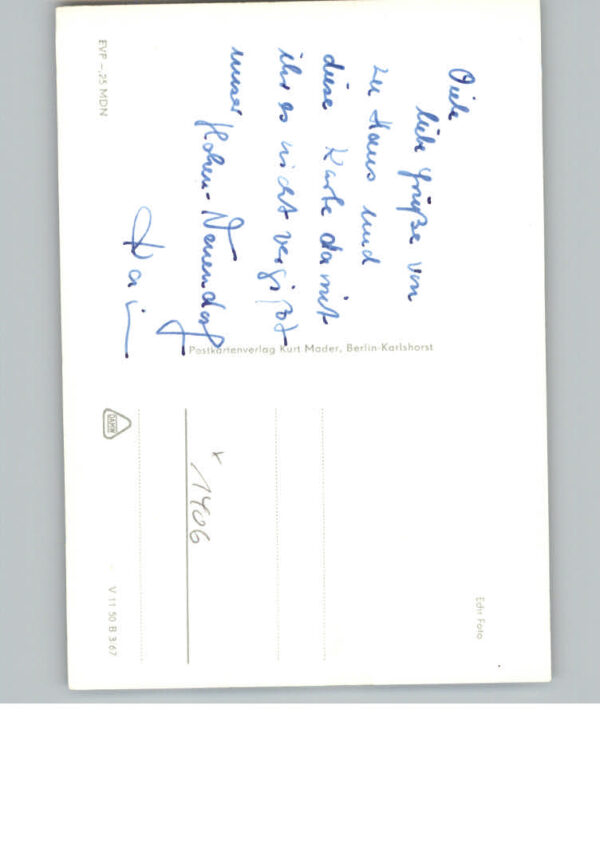 Viele
liebe Grüße von
zu Haus und
diese Karte damit
ihr es nicht vergißt
unser Hohen-Neuendorf
Postkartenverlag Kurt Mader, Berlin-Karlshorst
EVP -,25 MDN
DAMW
x 1406
V 11 50 B 3 67
Edit Foto